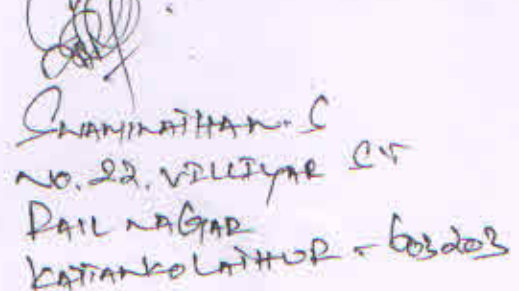 SWAMINATHAN. S
NO. 22. VILLIYAR ST
RAIL NAGAR
KATTANKOLATHUR - 603203